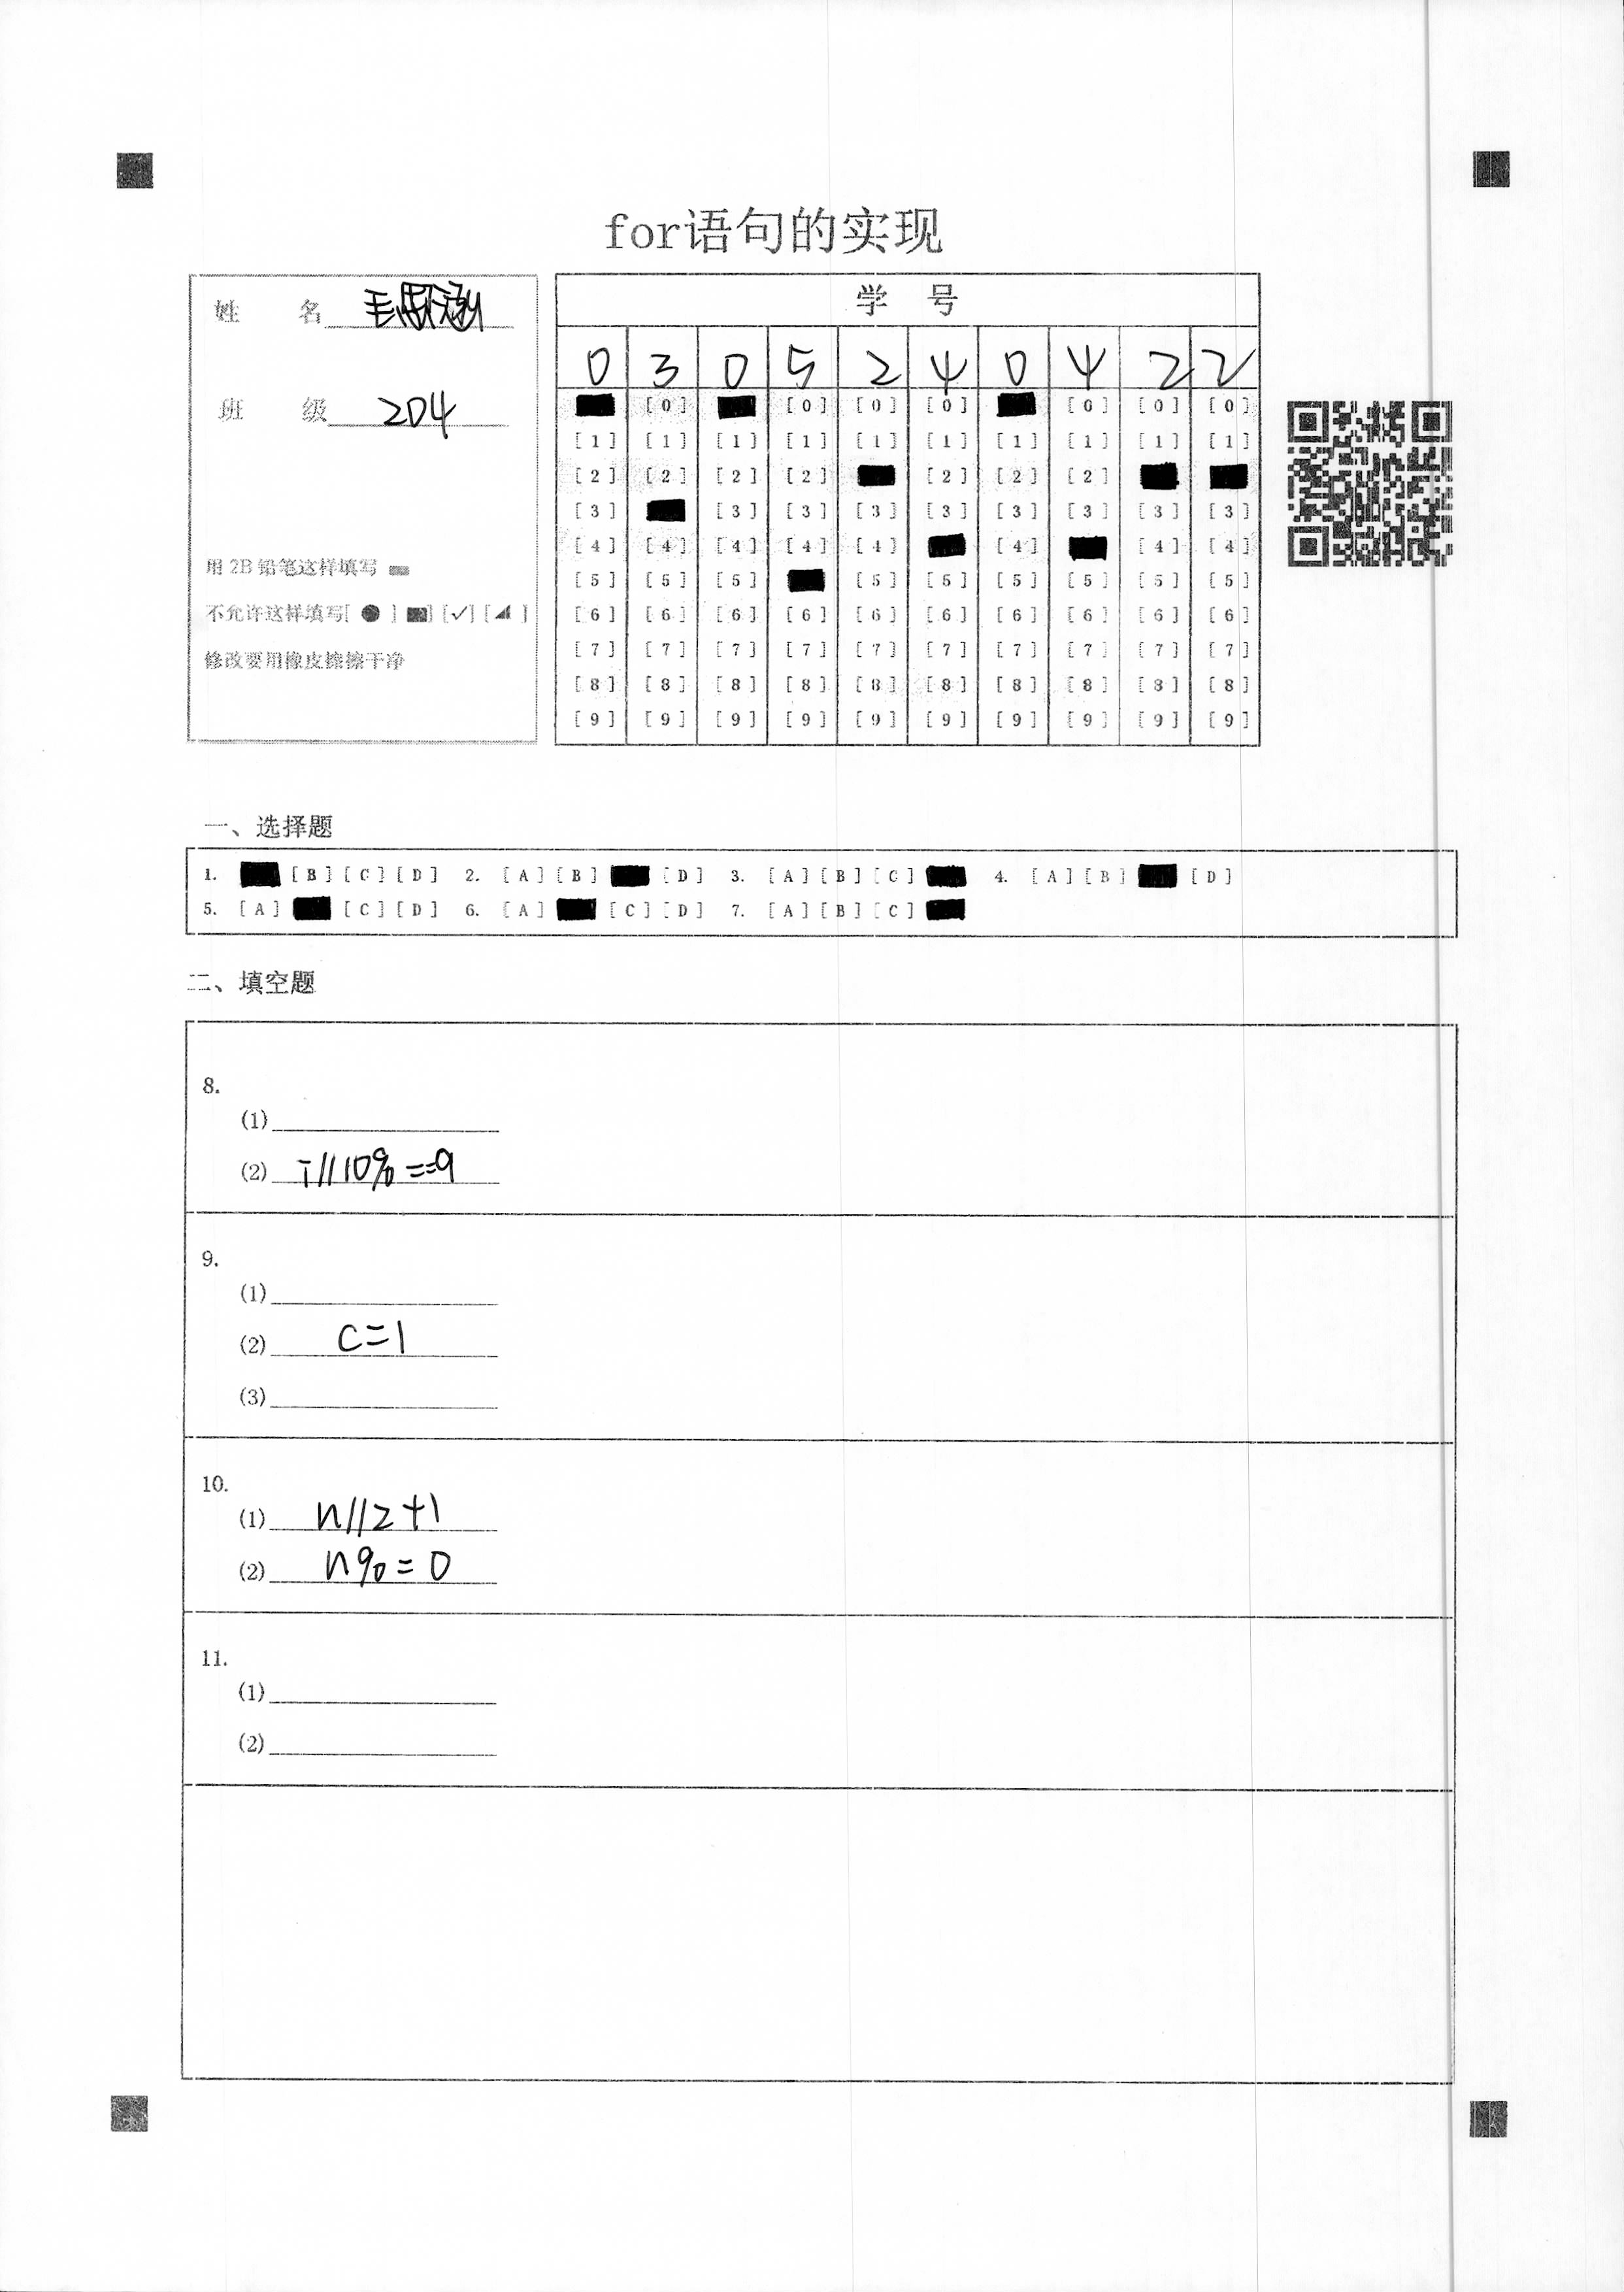 for语句的实现
姓 名
班 级 204
用 2B 铅笔这样填写
不允许这样填写[ ● ] [✓] [ ]
修改要用橡皮擦擦干净
学 号
0 3 0 5 2 4 0 4 2 2
[0] [0] [0] [0] [0] [0] [0]
[1] [1] [1] [1] [1] [1] [1] [1] [1] [1]
[2] [2] [2] [2] [2] [2] [2]
[3] [3] [3] [3] [3] [3] [3] [3] [3]
[4] [4] [4] [4] [4] [4] [4] [4]
[5] [5] [5] [5] [5] [5] [5] [5] [5]
[6] [6] [6] [6] [6] [6] [6] [6] [6] [6]
[7] [7] [7] [7] [7] [7] [7] [7] [7] [7]
[8] [8] [8] [8] [8] [8] [8] [8] [8] [8]
[9] [9] [9] [9] [9] [9] [9] [9] [9] [9]
一、选择题
1. [B] [C] [D] 2. [A] [B] [D] 3. [A] [B] [C] 4. [A] [B] [D]
5. [A] [C] [D] 6. [A] [C] [D] 7. [A] [B] [C]
二、填空题
8.
(1)
(2) i//10%==9
9.
(1)
(2) c=1
(3)
10.
(1) n//2+1
(2) n%=0
11.
(1)
(2)